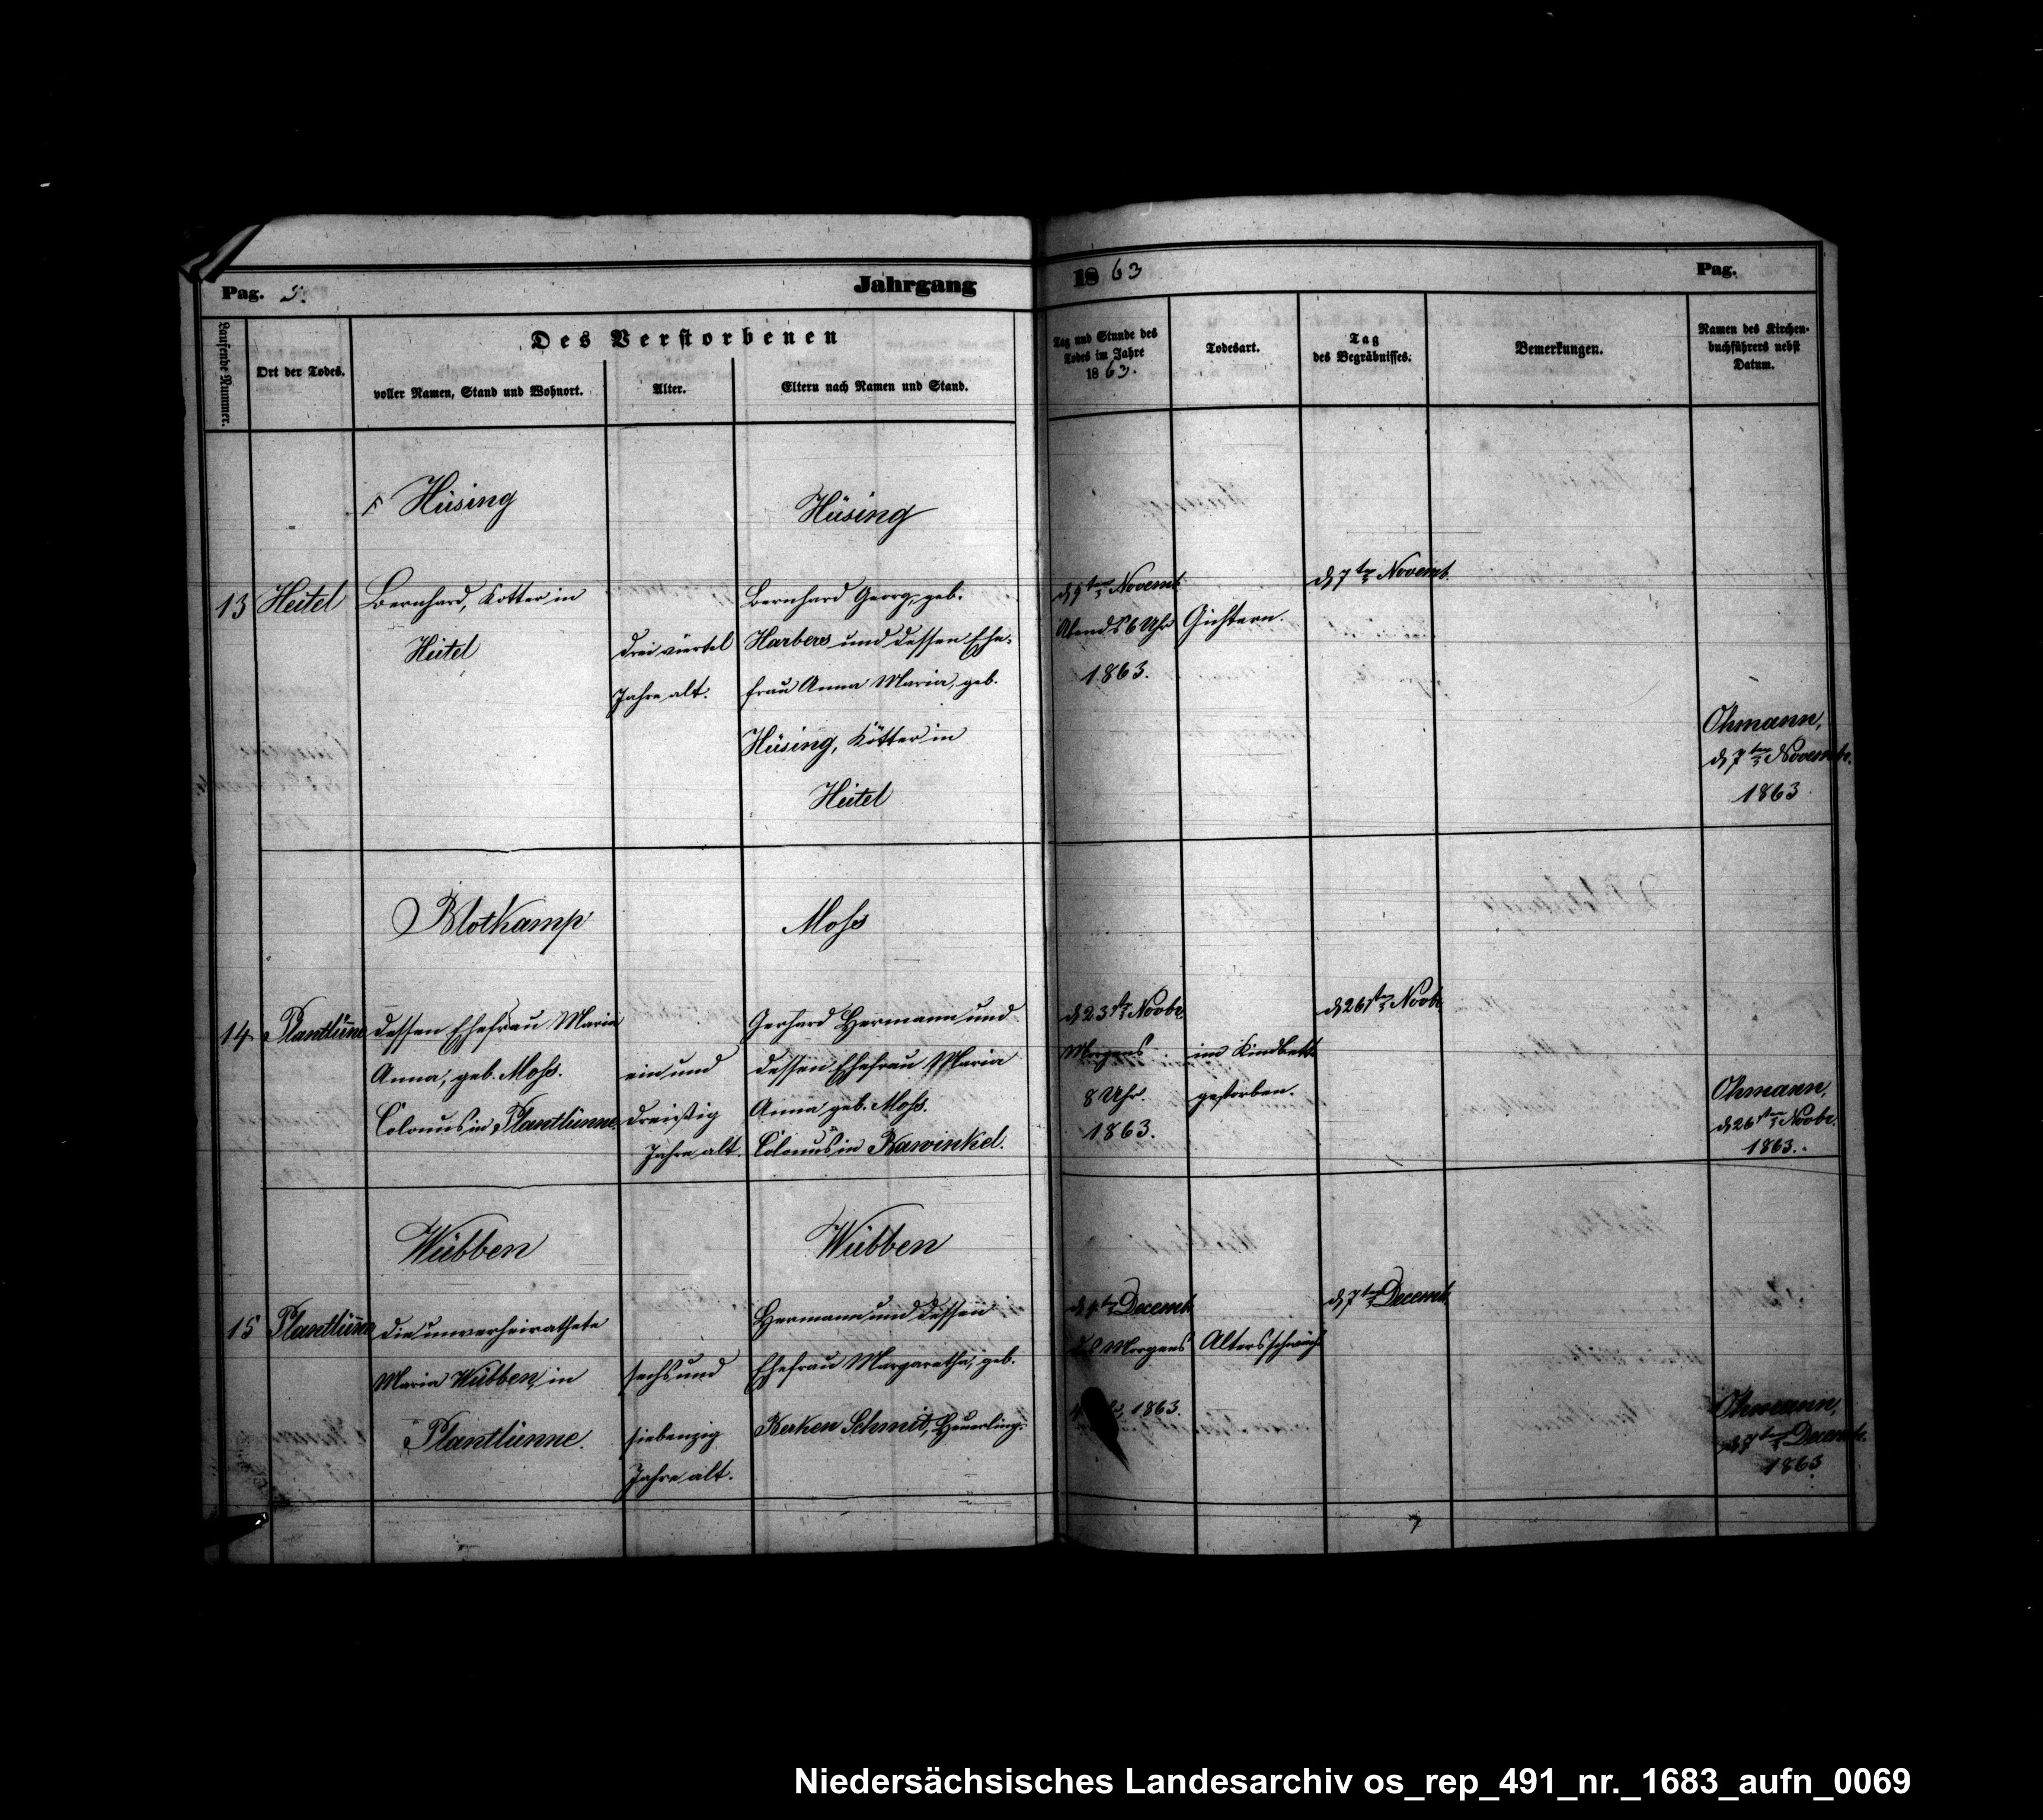 Pag. 5.
Jahrgang
1863
Pag.
Laufende Nummer.
Ort der Todes.
Des Verstorbenen
voller Namen, Stand und Wohnort.
Alter.
Eltern nach Namen und Stand.
Tag und Stunde des
Todes im Jahre
1863.
Todesart.
Tag
des Begräbnisses.
Bemerkungen.
Namen des Kirchen-
buchführers nebst
Datum.
Hüsing
Hüsing
13
Heitel
Bernhard, Kotter in
Heitel
drei viertel
Jahre alt.
Bernhard Georg, geb.
Harbers und dessen Ehe-
frau Anna Maria, geb.
Hüsing, Kötter in
Heitel
Novemb.
Abends 6 Uhr
1863.
Gichtern.
d. 7ten Novemb.
Ohmann,
d. 7ten Novembr.
1863
Blotkamp
Moss
14
Plantlünne
dessen Ehefrau Maria
Anna, geb. Moss.
Colonus in Plantlünne.
ein und
dreissig
Jahre alt.
Gerhard Hermann und
dessen Ehefrau Maria
Anna geb. Moss.
Colonus in Bawinkel.
d. 23sten Novbr.
Morgens
8 Uhr.
1863.
im Kindbett
gestorben.
d. 26sten Novbr.
Ohmann,
d. 26sten Novbr.
1863.
Wübben
Wübben
15
Plantlünne
die unverheirathete
Maria Wübben, in
Plantlünne.
sechs und
siebenzig
Jahre alt.
Hermann und dessen
Ehefrau Margaretha, geb.
Berken Schmit, Heuerling.
d. 4ten Decemb.
des Morgens
1863.
Altersschwäche
d. 7ten Decemb.
Ohmann,
d. 7ten Decembr.
1863
Niedersächsisches Landesarchiv os_rep_491_nr._1683_aufn_0069